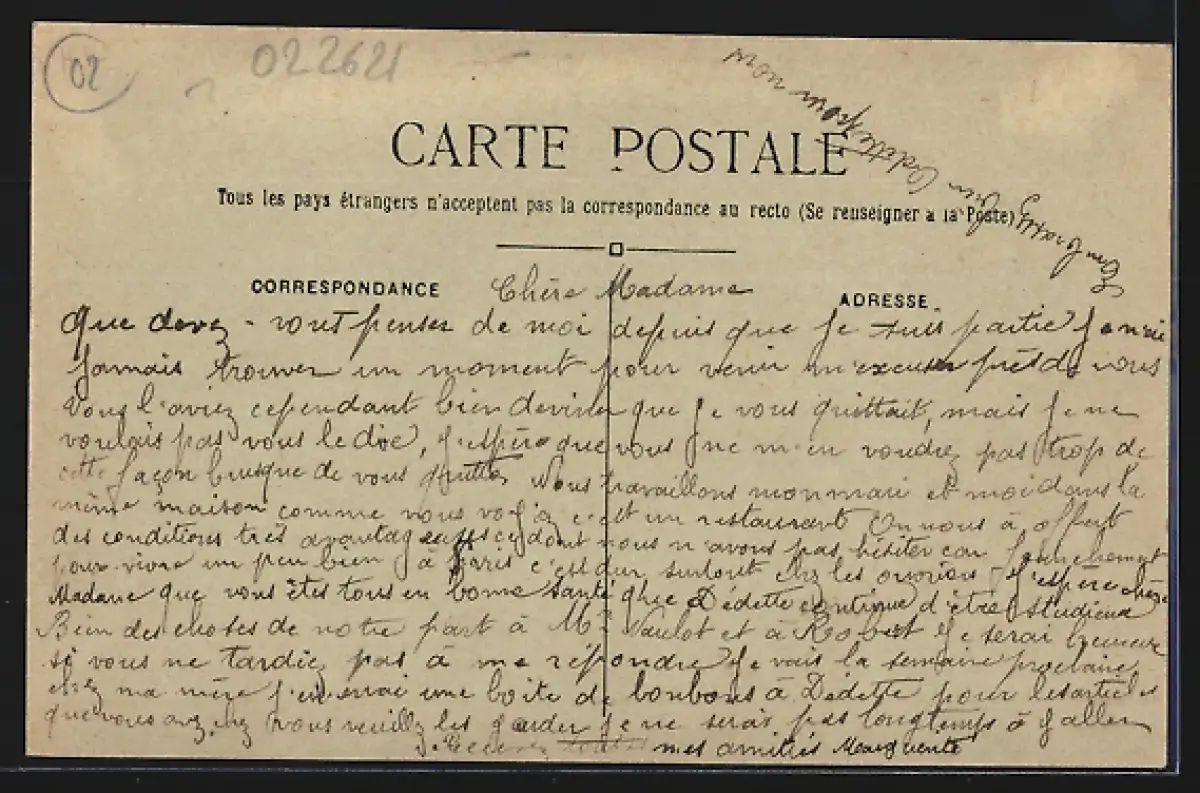 02
022621
CARTE POSTALE
Tous les pays étrangers n'acceptent pas la correspondance au recto (Se renseigner a la Poste)
CORRESPONDANCE
ADRESSE
Chère Madame
Que devez-vous penser de moi depuis que je suis partie je n'ai
jamais trouver un moment pour venir m'excuser près de vous
Vous l'aviez cependant bien deviner que je vous quittait, mais je ne
voulais pas vous le dire, j'espère que vous ne m'en voudrez pas trop de
cette façon brusque de vous quitter Nous travaillons mon mari et moi dans la
même maison comme vous voyez c'est un restaurant On nous à offert
des conditions très avantageuses dont nous n'avons pas hésiter car franchement
pour vivre un peu bien à Paris c'est dur surtout chez les ouvriers j'espère chère
Madame que vous êtes tous en bonne santé que Dédette continue d'être studieuse
Bien des choses de notre part à Mr et à Robert je serai heureuse
si vous ne tardiez pas à me répondre je vais la semaine prochaine
chez ma mère j'enverrai une boîte de bonbons à Dédette pour les articles
que vous avez chez vous veuillez les garder je ne serais pas longtemps à y aller
Recevez toutes mes amitiés Marguerite
Embrassez bien Dédette pour nous